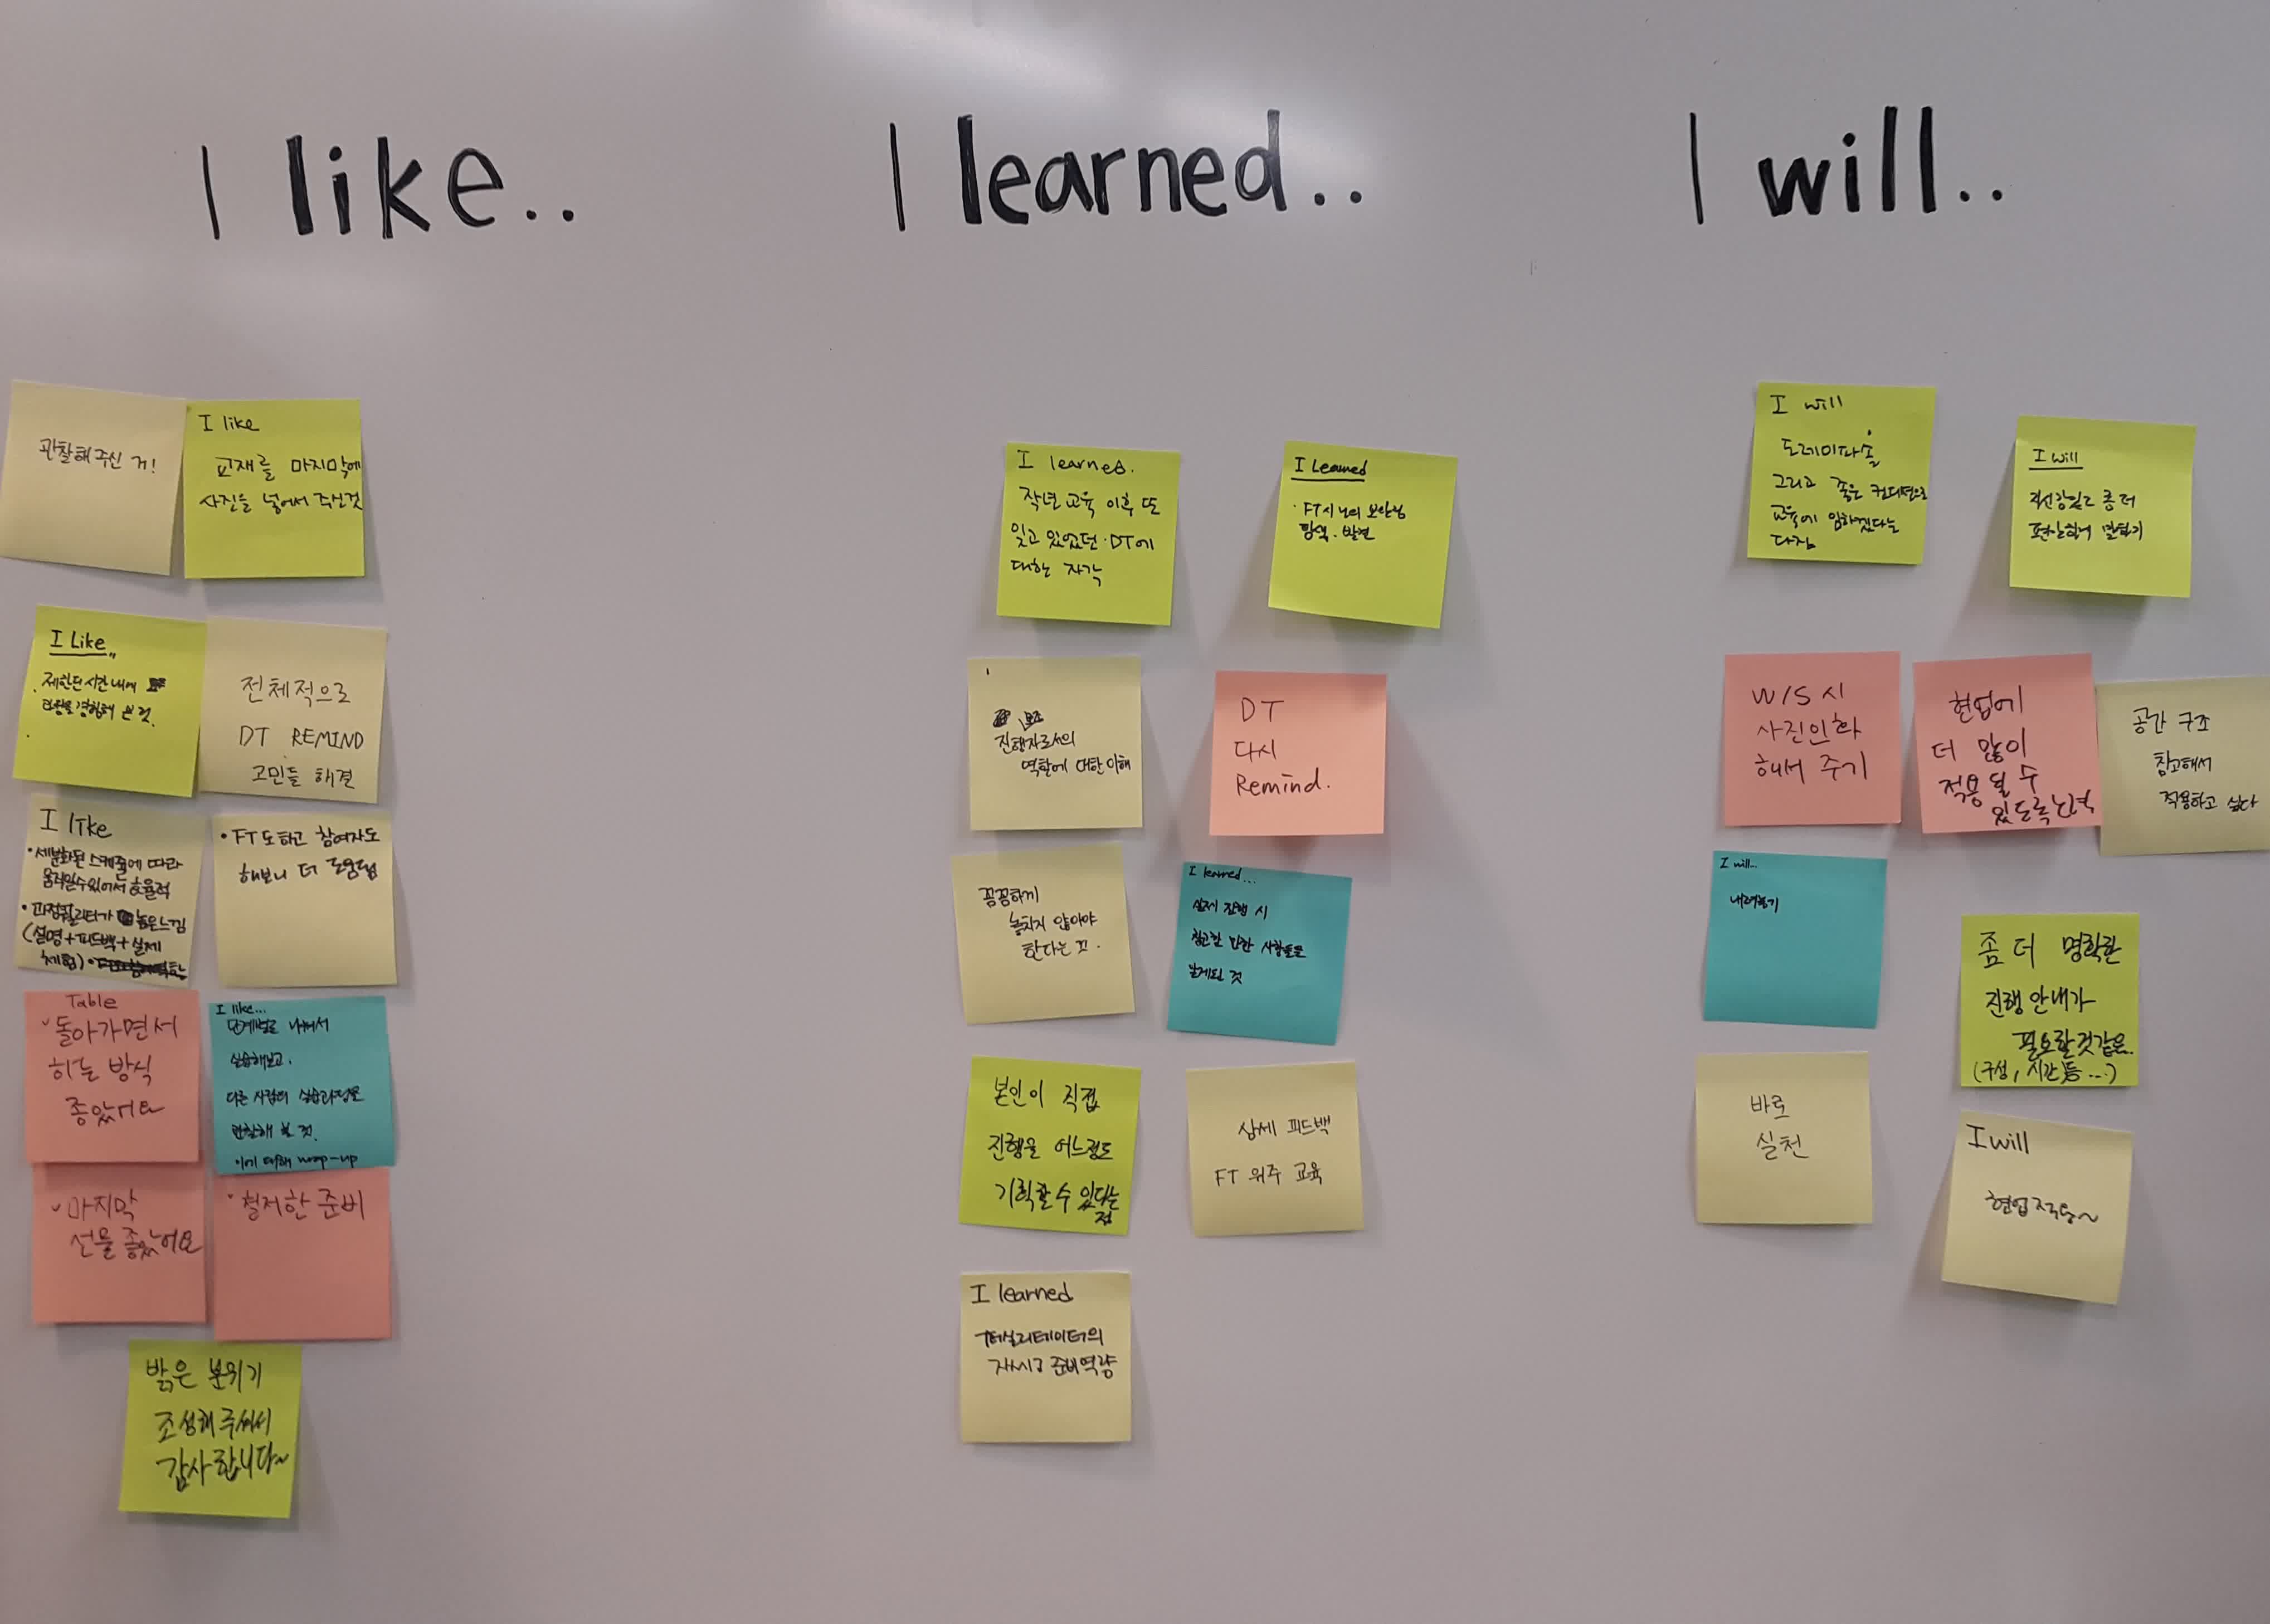 I like..
관찰해 주신 거!
I like
교재를 마지막에
사진을 넣어서 주신것
I Like
제한된 시간 내에
경험해 본 것.
전체적으로
DT REMIND
고민들 해결
I like
• 세분화된 스케줄에 따라
움직일수있어서 효율적
• 과정퀄리티가 높은느낌
(설명+피드백+실제
체험)
• FT도 하고 참여자도
해보니 더 도움됨
Table
돌아가면서
하는 방식
좋았어요
I like...
단계별로 나눠서
실습해보고,
다른 사람의 실습과정을
관찰해 본 것.
이에 대해 wrap-up
마지막
선물 좋았어요
철저한 준비
밝은 분위기
조성해 주셔서
감사합니다~
I learned..
I learned.
작년 교육 이후 또
잊고 있었던 DT에
대한 자각
I Learned
• FT시 나의 보완점
탐색. 발견
진행자로서의
역할에 대한 이해
DT
다시
Remind.
꼼꼼하게
놓치지 않아야
한다는 것.
I learned...
실제 진행 시
참고할 만한 사항들을
알게된 것
본인이 직접
진행을 어느정도
기획할 수 있다는
점
상세 피드백
FT 위주 교육
I learned
퍼실리테이터의
준비역량
I will..
I will
도레미파솔
그리고 좋은 컨디션으로
교육에 임하겠다는
다짐
I will
좀 더
편안하게 말하기
W/S 시
사진인화
해서 주기
현업에
더 많이
적용 될 수
있도록 노력
공간 구조
참고해서
적용하고 싶다
I will...
내려놓기
좀 더 명확한
진행 안내가
필요할것같은..
(구성, 시간 등 ...)
바로
실천
I will
현업 적용~